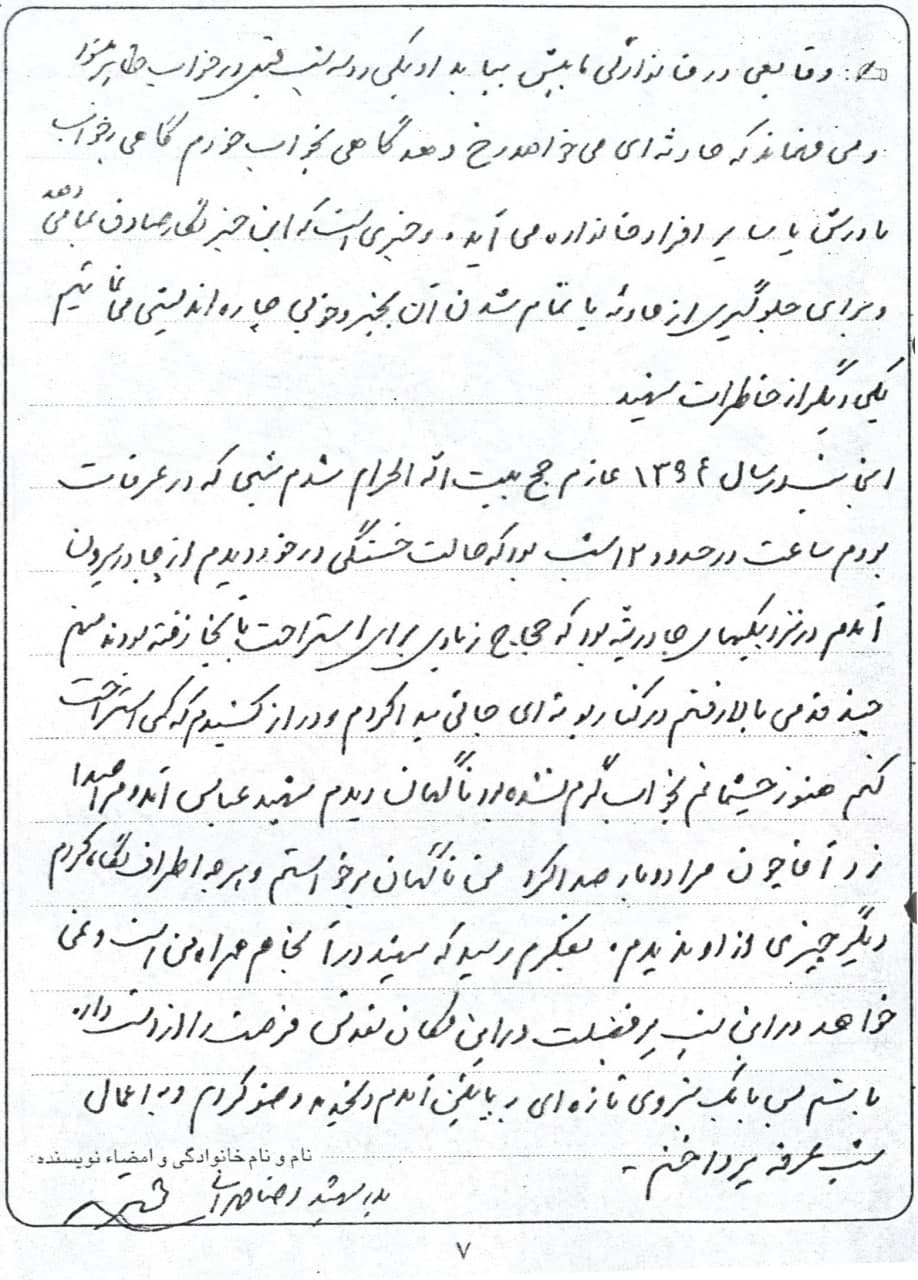 که وقایعی در خانوادگی ما پیش بیاید او یکی دو سه شب قبلی در خواب ظاهر میشود
و می فهماند که حادثه ای می خواهد رخ دهد گاهی بخواب خودم گاهی بخواب
مادرش یا سایر افراد خانواده می آید. و چیزی است که این خبر
و برای جلوگیری از حادثه یا تمام شدن آن بخیر و خوبی چاره اندیشی می نمائیم
یکی دیگر از خاطرات شهید
اینجانب در سال ۱۳۶۴ عازم حج بیت اله الحرام شدم شبی که در عرفات
بودم ساعت در حدود ۱۲ شب بود که حالت خستگی در خود دیدم از چادر بیرون
آمدم در نزدیکیهای چادر تپه بود که حجاج زیادی برای استراحت بآنجا رفته بودند منهم
چند قدمی بالا رفتم در کنار بوته ای جائی پیدا کردم و دراز کشیدم که کمی استراحت
کنم هنوز چشمانم بخواب گرم نشده بود ناگهان دیدم شهید عباس آمد و مرا صدا
زد آقاجون مرا دوبار صدا کرد من ناگهان برخواستم و هر چه اطراف نگاه کردم
دیگر چیزی از او ندیدم. بفکرم رسید که شهید در آنجا هم همراه من است و نمی
خواهد در این شب پر فضیلت در این مکان مقدس فرصت را از دست داده
باشم پس با یک نیروی تازه ای به پائین آمدم و تجدید وضو کردم و به اعمال
شب عرفه پرداختم -
نام و نام خانوادگی و امضاء نویسنده
پدر شهید
۷